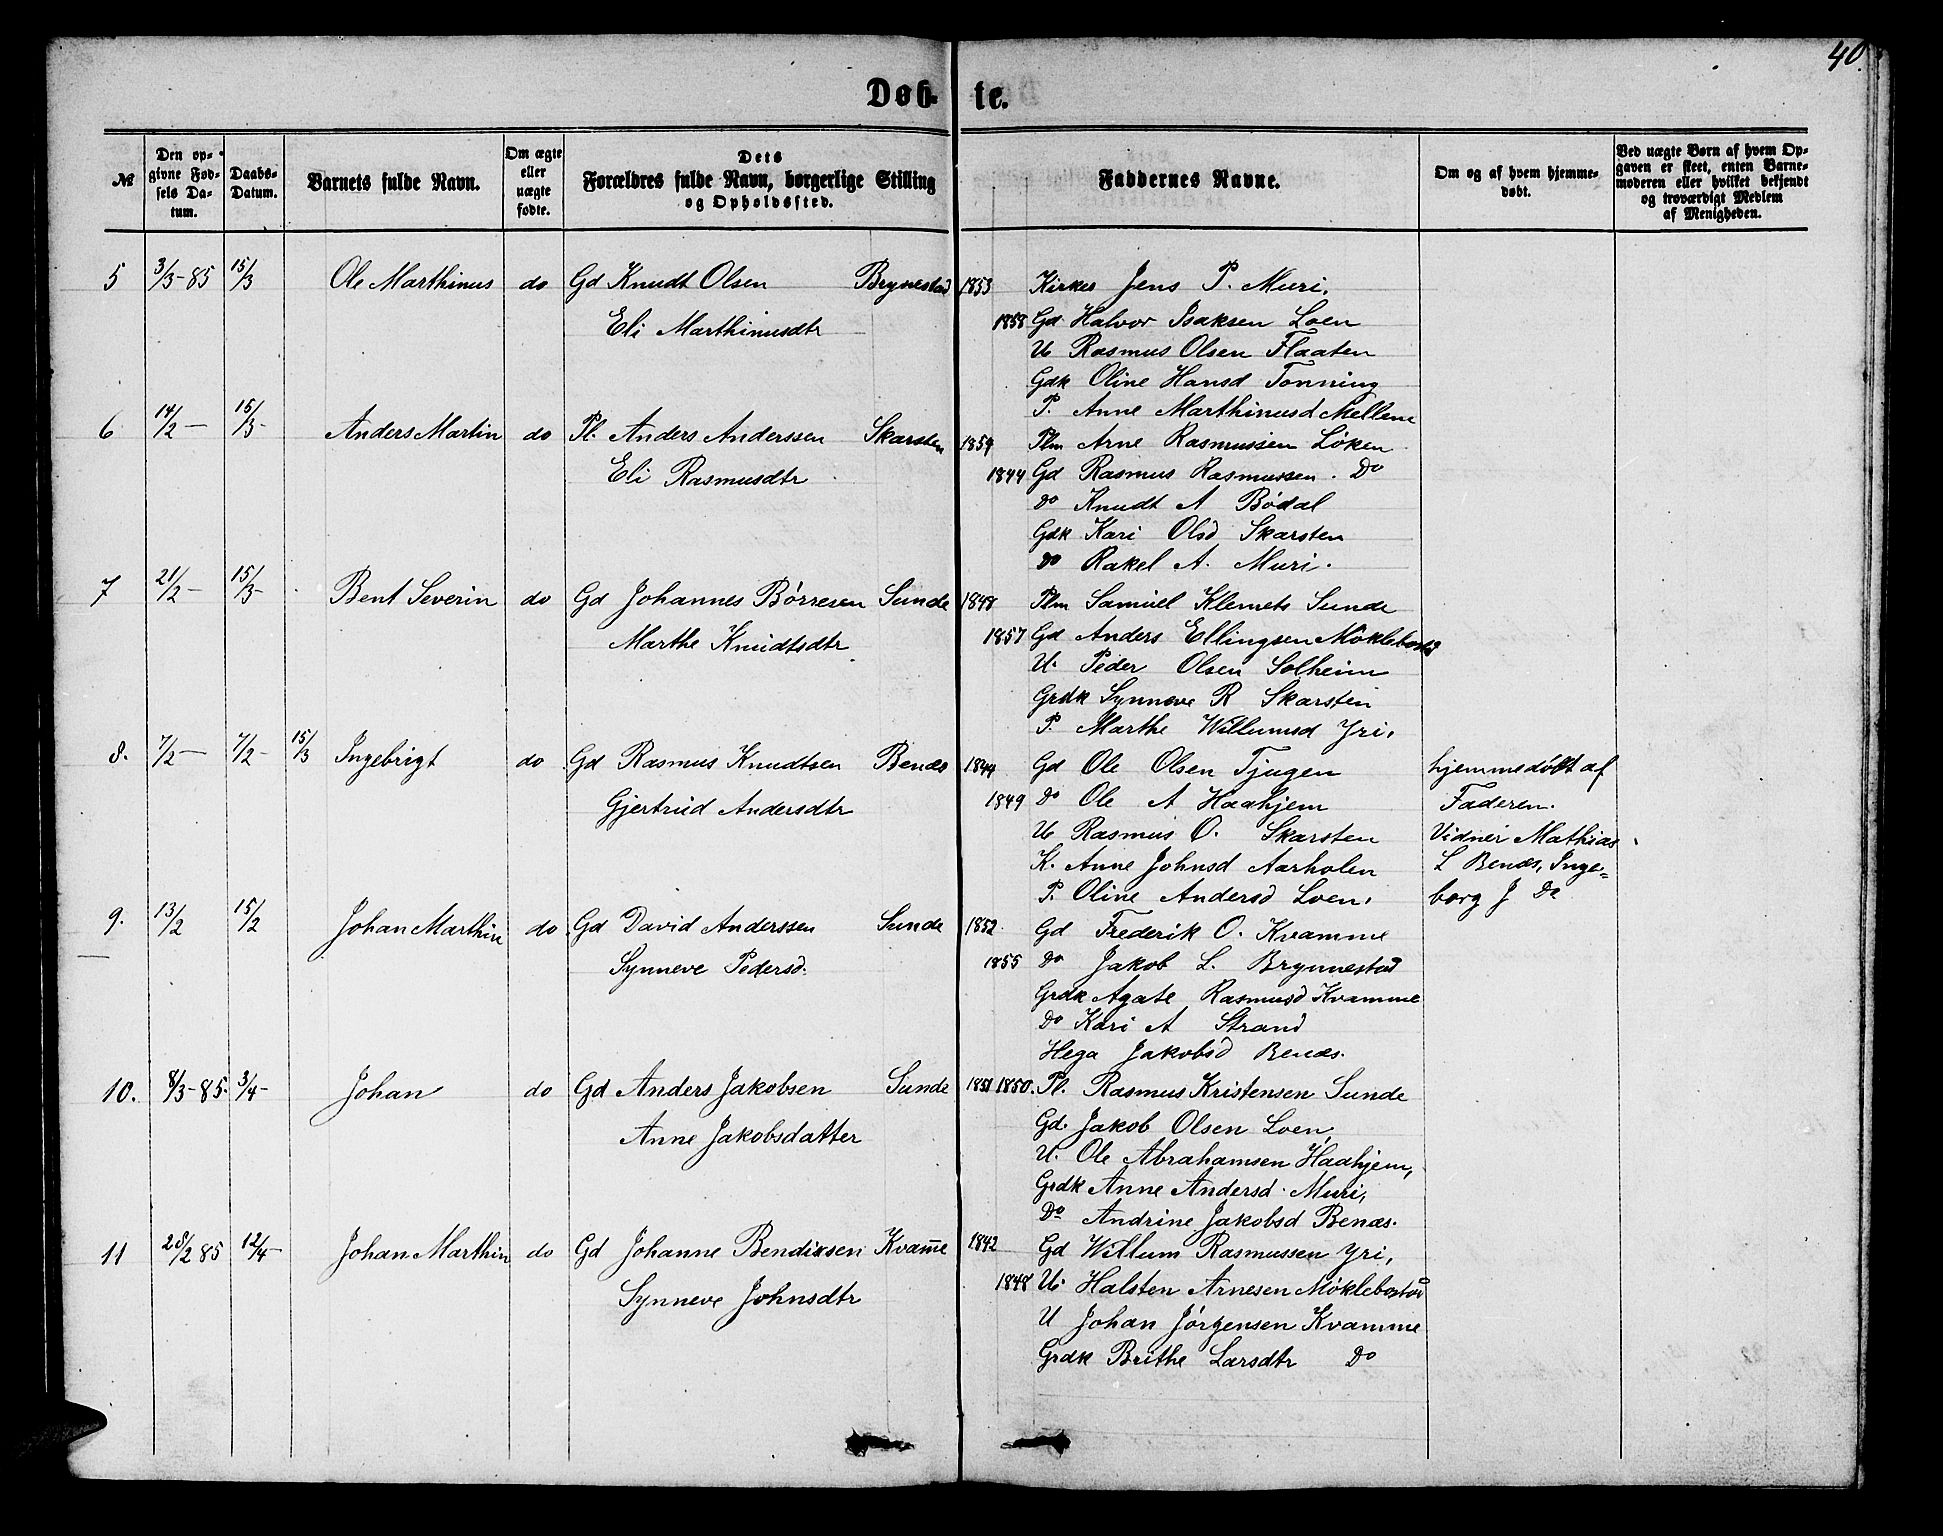 40.
Døb- te.
№
Den opgivne Fødsels Datum.
Daabs-Datum.
Barnets fulde Navn.
Om ægte eller uægte fødte.
Dets Forældres fulde Navn, borgerlige Stilling og Opholdssted.
Faddernes Navne.
Om og af hvem hjemmedøbt.
Ved uægte Børn af hvem Opgaven er skeet, enten Barnemoderen eller hvilket bekjendt og troværdigt Medlem af Menigheden.
5 3/3-85 15/3 Ole Marthinus do Gd Knudt Olsen Brynestad 1853 Kirkes Jens P. Muri.
Eli Marthinusdtr 1858 Gd Halvor Isaksen Loen
U Rasmus Olsen Flaaten
Gdk Oline Hansd Tonning
P. Anne Marthinusd Mellene
6 14/2 - 15/3- Anders Martin do Pl. Anders Anderssen Skarsten 1859 Plm Arne Rasmussen Løken
Eli Rasmusdtr 1844 Gd Rasmus Rasmussen. Do
do Knudt A Bødal
Gdk Kari Olsd Skarsten
do Rakel A. Muri.
7 21/2 - 15/3- Bent Severin do Gd Johannes Børresen Sunde 1848 Plm Samuel Klemets Sunde
Marthe Knudtsdtr 1857 Gd Anders Ellingsen Møklebostd
U. Peder Olsen Solheim
Grdk Synneve R Skarsten
P. Marthe Willumsd Yri.
8. 7/2 - 7/2- 15/3 Ingebrigt do Gd Rasmus Knudtsen Benæs 1844 Gd Ole Olsen Tjugen hjemmedøbt af
Gjertrud Andersdtr 1849 Do Ole A Haahjem Faderen.
U Rasmus O. Skarsten Vidner Mathias
K. Anne Johnsd Aarholen L Benæs, Inge=
P. Oline Andersd Loen. borg J Do
9. 13/2 15/2 Johan Marthin do Gd David Anderssen Sunde 1852 Gd Frederik O. Kvamme
Synneve Pedersd. 1855 Do Jakob L. Brynnestad
Grdk Agate Rasmusd Kvamme
Do Kari A Strand
Hega Jakobsd Benæs.
10. 8/3-85. 3/4- Johan do Gd Anders Jakobsen Sunde 1851 1850. Pl. Rasmus Kristensen Sunde
Anne Jakobsdatter Gd. Jakob Olsen Loen,
U. Ole Abrahamsen Haahjem,
Grdk Anne Andersd. Muri,
Do Andrine Jakobsd Benæs.
11 28/2 85 12/4- Johan Marthin do Gd Johanne Bendixsen Kvam̅e 1842 Gd Willum Rasmussen Yri,
Synneve Johnsdtr 1848 U. Halsten Arnesen Møklebostad
U Johan Jørgensen Kvamme
Grdk Brithe Larsdtr Do